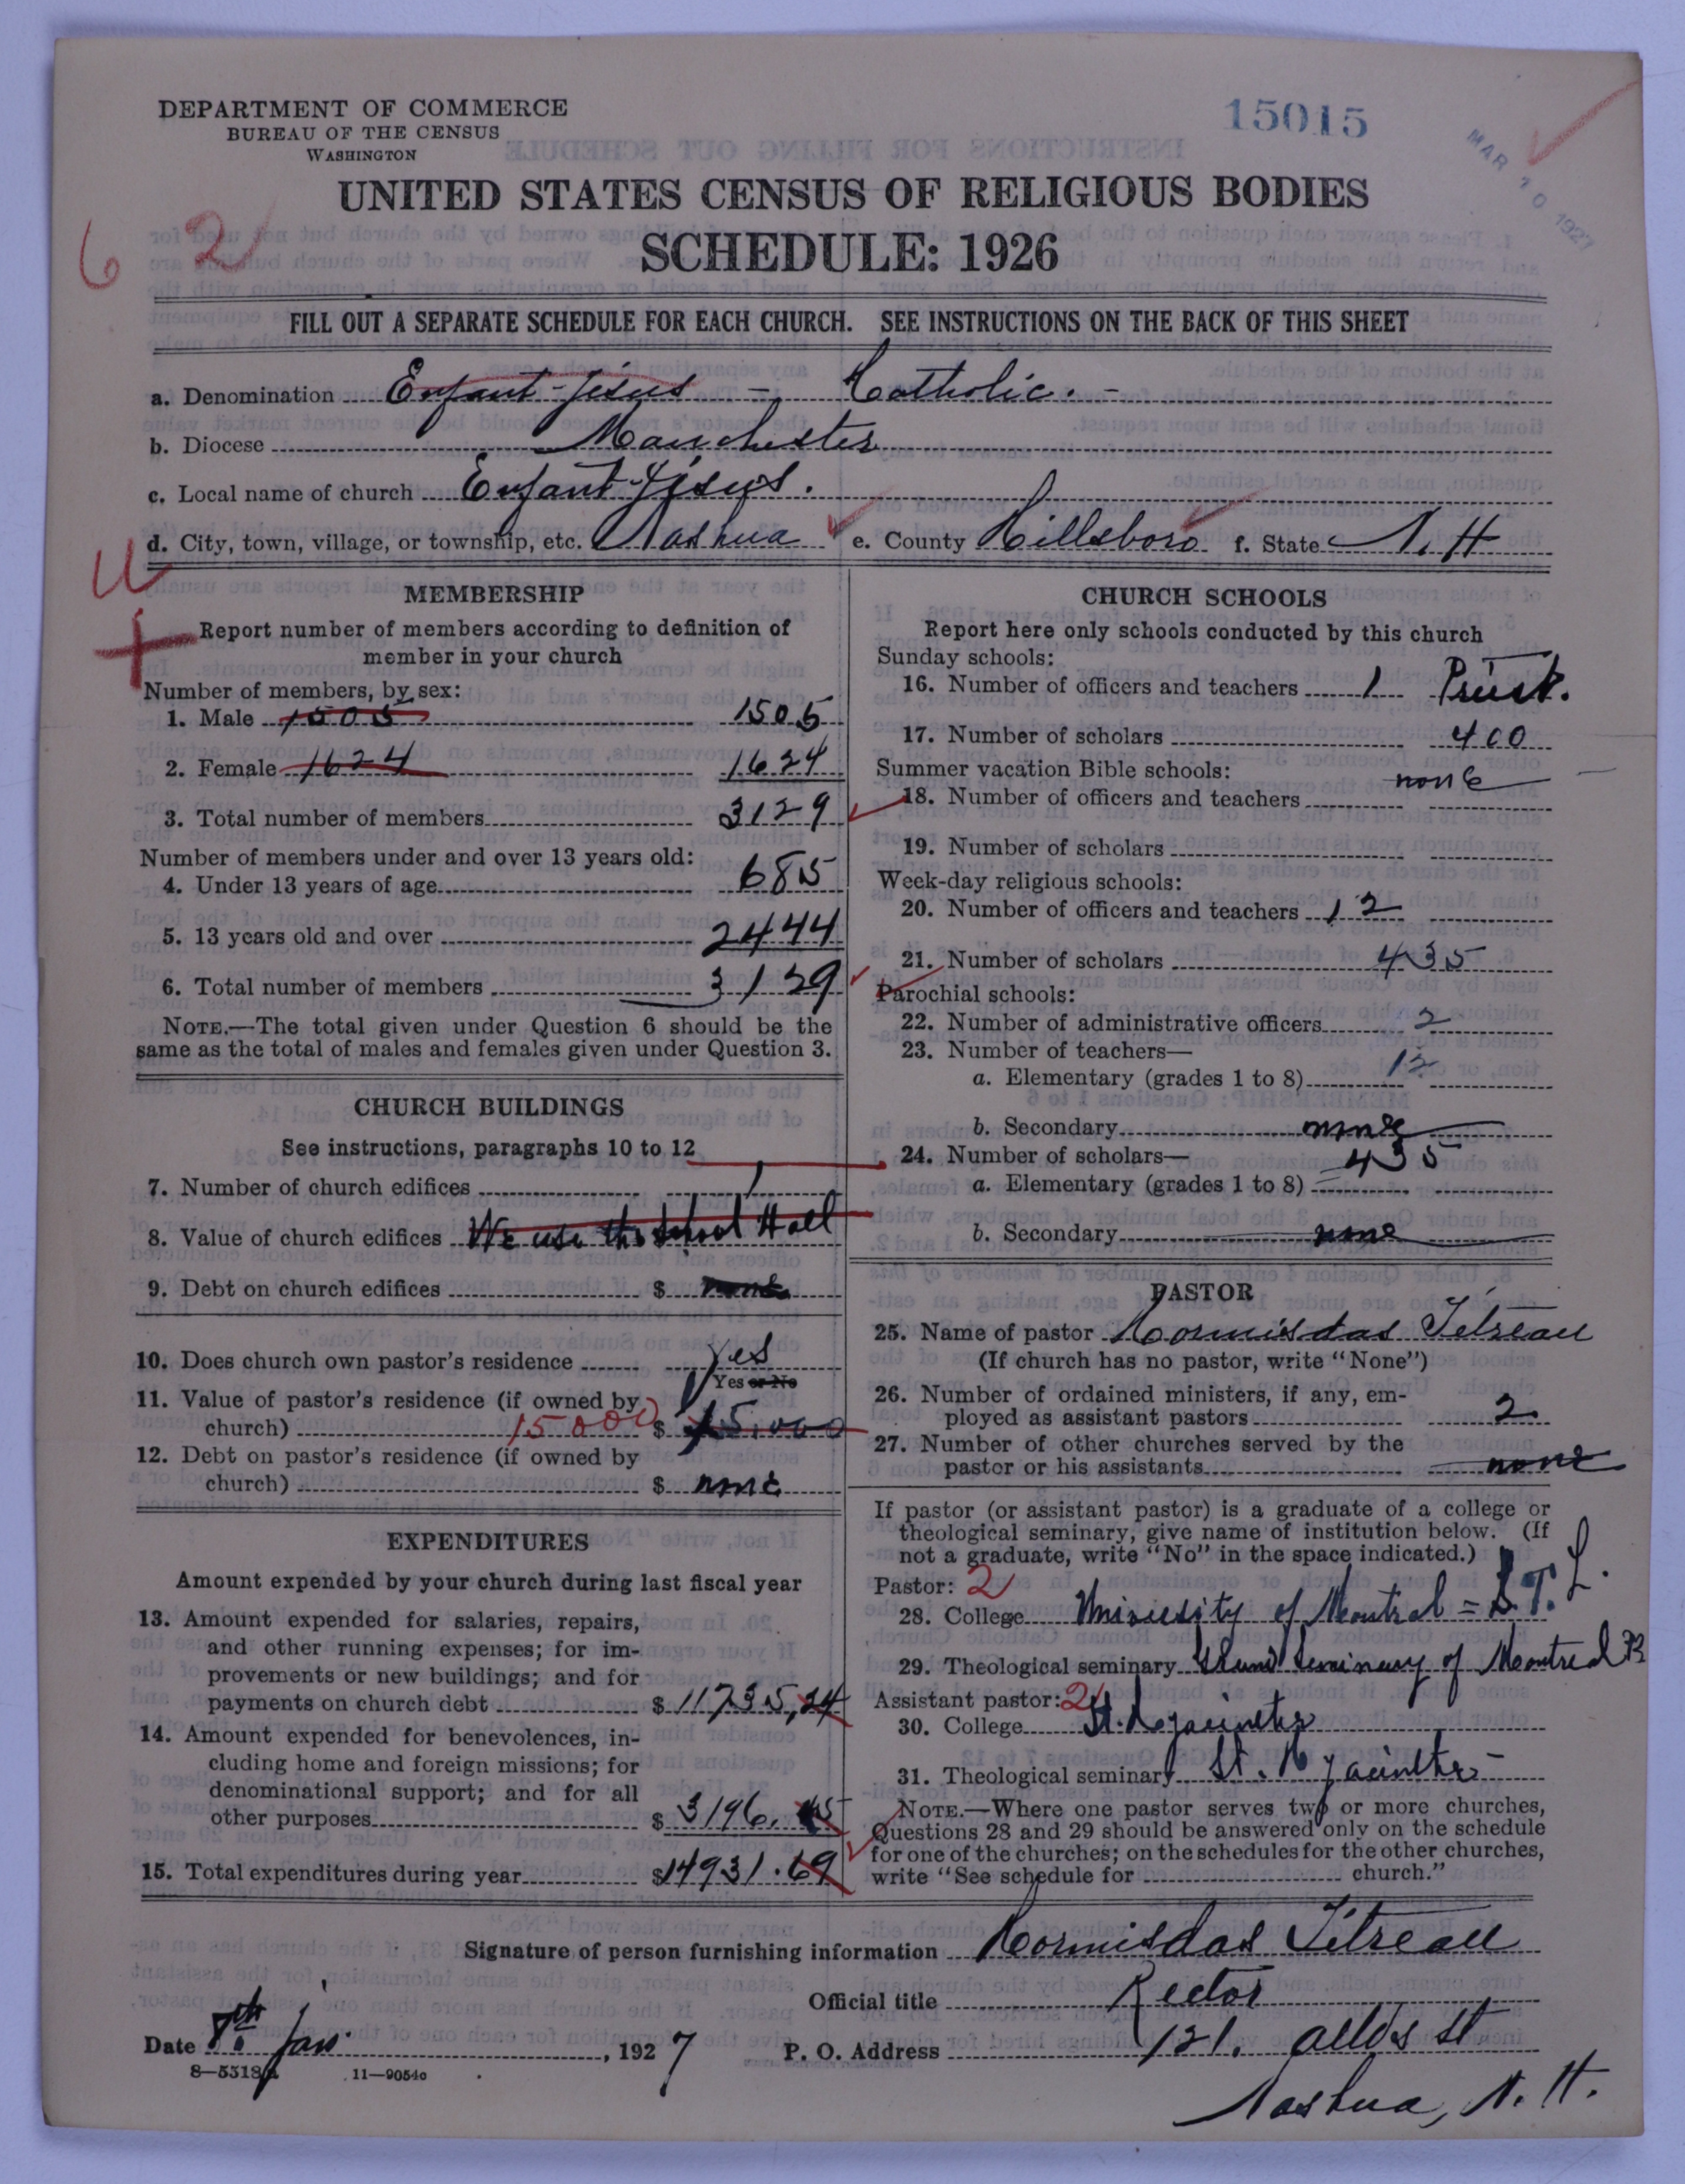 DEPARTMENT OF COMMERCE
BUREAU OF THE CENSUS
WASHINGTON
15015
MAR 10 1927
UNITED STATES CENSUS OF RELIGIOUS BODIES
6 2
SCHEDULE: 1926
FILL OUT A SEPARATE SCHEDULE FOR EACH CHURCH. SEE INSTRUCTIONS ON THE BACK OF THIS SHEET
a. Denomination Enfant-Jésus - Catholic. -
b. Diocese Manchester
c. Local name of church Enfant-Jésus.
d. City, town, village, or township, etc. Nashua e. County Hillsboro f. State N. H
U
MEMBERSHIP
Report number of members according to definition of
member in your church
Number of members, by sex:
1. Male 1505 1505
2. Female 1624 1624
3. Total number of members 3129
Number of members under and over 13 years old:
4. Under 13 years of age 685
5. 13 years old and over 2444
6. Total number of members 3129
NOTE.—The total given under Question 6 should be the
same as the total of males and females given under Question 3.
CHURCH BUILDINGS
See instructions, paragraphs 10 to 12
7. Number of church edifices 1
8. Value of church edifices We use the School Hall
9. Debt on church edifices $ none
10. Does church own pastor's residence Yes
Yes or No
11. Value of pastor's residence (if owned by
church) 15000 $ 15,000
12. Debt on pastor's residence (if owned by
church) $ none
EXPENDITURES
Amount expended by your church during last fiscal year
13. Amount expended for salaries, repairs,
and other running expenses; for im-
provements or new buildings; and for
payments on church debt $ 11735,24
14. Amount expended for benevolences, in-
cluding home and foreign missions; for
denominational support; and for all
other purposes $ 3196. 45
15. Total expenditures during year $14931.69
CHURCH SCHOOLS
Report here only schools conducted by this church
Sunday schools:
16. Number of officers and teachers 1 Priest.
17. Number of scholars 400
Summer vacation Bible schools:
18. Number of officers and teachers none
19. Number of scholars
Week-day religious schools:
20. Number of officers and teachers 12
21. Number of scholars 435
Parochial schools:
22. Number of administrative officers 2
23. Number of teachers—
a. Elementary (grades 1 to 8) 12
b. Secondary none
24. Number of scholars—
a. Elementary (grades 1 to 8) 435
b. Secondary none
PASTOR
25. Name of pastor Hormisdas Tétreau
(If church has no pastor, write "None")
26. Number of ordained ministers, if any, em-
ployed as assistant pastors 2
27. Number of other churches served by the
pastor or his assistants none
If pastor (or assistant pastor) is a graduate of a college or
theological seminary, give name of institution below. (If
not a graduate, write "No" in the space indicated.)
Pastor: 2
28. College University of Montreal = S.T.L.
29. Theological seminary Seminary of Montreal
Assistant pastor: 2
30. College St. Hyacinthe
31. Theological seminary St. Hyacinthe
NOTE.—Where one pastor serves two or more churches,
Questions 28 and 29 should be answered only on the schedule
for one of the churches; on the schedules for the other churches,
write "See schedule for church."
Signature of person furnishing information Hormisdas Tétreau
Official title Rector
Date 8th Jan. , 1927 P. O. Address 121. Allds St
8—5518 11—9054c
Nashua, N. H.